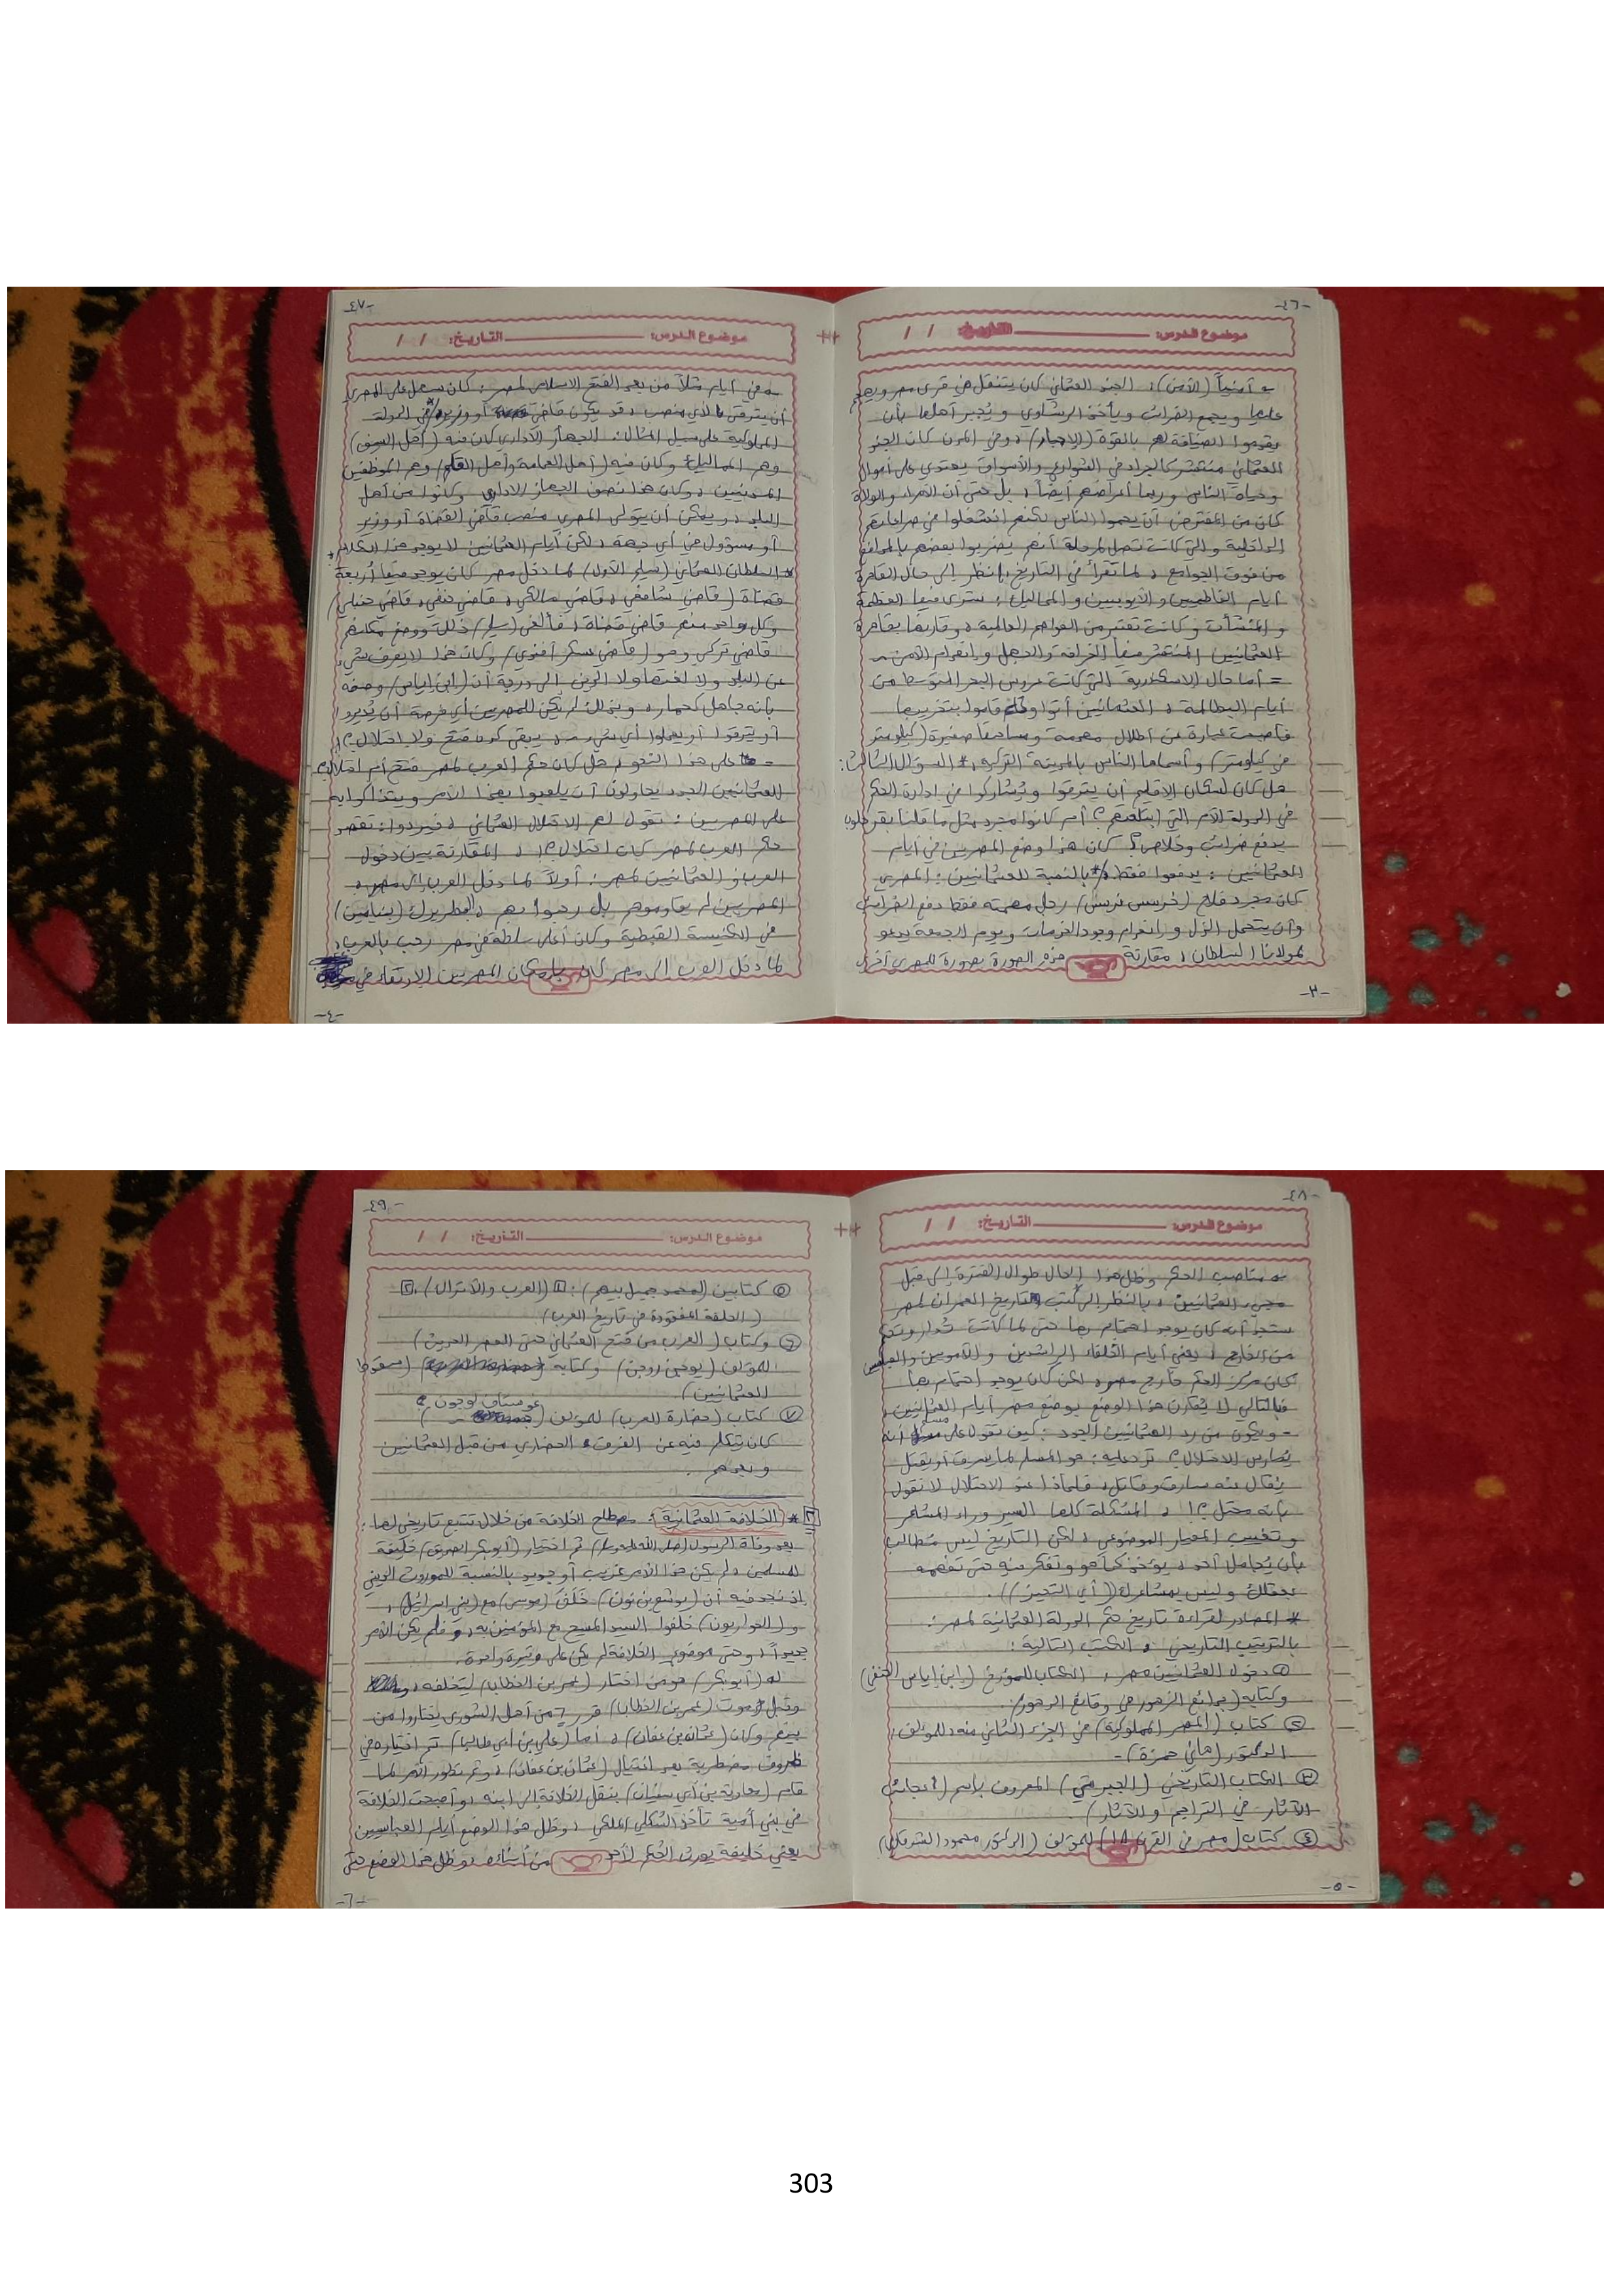 -٤٦-
موضوع الدرس: التاريخ: / /
= أمنياً (الأمن): الجند العثماني كان يتنقل في قرى مصر ويهجم
عليها ويجمع الضرائب ويأخذ الرشاوي ويُجبر أهلها بأن
يقوموا لضيافتهم بالقوة (الإجبار) وفي المدن كان الجند
العثماني منتشر كالجراد في الشوارع والأسواق يعتدي على أموال
وحياة الناس وربما أعراضهم أيضاً، بل حتى أن الأمراء والولاة
كان من المفترض أن يحموا الناس لكنهم انشغلوا في صراعاتهم
الداخلية والتي كانت تصل لمرحلة أنهم يضربوا بعضهم بالمدافع
من فوق الجوامع، لما تقرأ في التاريخ، انظر إلى حال القاهرة
أيام الفاطميين والأيوبيين والمماليك: سترى فيها العظمة
والمنشآت وكانت تعتبر من العواصم العالمية، وقارنها بقاهرة
العثمانيين المنتشر فيها الخرافة والدجل وانعدام الأمن.
= أما حال الاسكندرية التي كانت عروس البحر المتوسط من
أيام البطالمة، العثمانيين أتوا وقاموا بتخريبها
فأصبحت عبارة عن أطلال مهدمة ومساحتها صغيرة (كيلومتر
في كيلومتر) وأسماها الناس بالمدينة التركية، * السؤال الثالث:
هل كان لسكان الإقليم أن يترقوا ويُشاركوا في إدارة الحكم
في الدولة الأم التي ابتلعتهم؟ أم كانوا مجرد مثل ما قلنا بقر حلوب
يدفع ضرائب وخلاص؟ كان هذا وضع المصريين في أيام
العثمانيين: يدفعوا فقط، * بالنسبة للعثمانيين: المصري
كان مجرد فلاح (خرسيس نرسيس) رجل مهمته فقط دفع الضرائب
وأن يتحمل الذل وانعدام وجود الخدمات ويوم الجمعة يدعو
لمولانا السلطان، مقارنة هذه الصورة بصورة للمصري أخرى
-٣-
-٤٧-
موضوع الدرس: التاريخ: / /
= في أيام مثلاً من بعد الفتح الإسلامي لمصر: كان يسهل على المصري
أن يترقى لأي منصب، قد يكون قاضي أو وزير، * في الدولة
المملوكية على سبيل المثال: الجهاز الإداري كان فيه (أهل السيف)
وهم المماليك وكان فيه (أهل العمامة وأهل القلم) وهم الموظفين
المدنيين، وكان هذا نصف الجهاز الإداري وكانوا من أهل
البلد، ويمكن أن يتولى المصري منصب قاضي القضاة أو وزير
أو مسؤول في أي جهة، لكن أيام العثمانيين لا يوجد هذا الكلام،
* السلطان العثماني (سليم الأول) لما دخل مصر كان يوجد فيها أربعة
قضاة (قاضي شافعي، قاضي مالكي، قاضي حنفي، قاضي حنبلي)
وكل واحد منهم قاضي قضاة، فألغى (سليم) ذلك ووضع مكانهم
قاضي تركي وهو (قاضي عسكر أفندي) وكان هذا لا يعرف شيء
عن البلد ولا لغتها ولا الدين إلى درجة أن (ابن إياس) وصفه
بأنه جاهل كحمار، وبذلك لم يكن للمصريين أي فرصة أن يُديروا
أو يترقوا أو يعملوا أي شيء، يبقى كده فتح ولا احتلال؟!
= على هذا النحو، هل كان حكم العرب لمصر فتح أم احتلال؟
العثمانيين الجدد يحاولون أن يلعبوا بهذا الأمر ويتذاكوا به
على المصريين: تقول لهم الاحتلال العثماني، فيردوا: تقصد
حكم العرب لمصر كان احتلال؟!، المقارنة بين دخول
العرب والعثمانيين لمصر: أولاً لما دخل العرب إلى مصر،
المصريين لم يقاوموهم بل رحبوا بهم، البطريرك (بنيامين)
في الكنيسة القبطية وكان أعلى سلطة في مصر رحب بالعرب،
لما دخل العرب إلى مصر كان بإمكان المصريين الارتقاء في
-٤-
-٤٨-
موضوع الدرس: التاريخ: / /
= مناصب الحكم وظل هذا الحال طوال الفترة إلى قبل
مجيء العثمانيين، بالنظر إلى كتب تاريخ العمران لمصر
ستجد أنه كان يوجد اهتمام بها حتى لما كانت تُدار
من الخارج، يعني أيام الخلفاء الراشدين والأمويين والعباسيين
كان مركز الحكم خارج مصر، لكن كان يوجد اهتمام بها
فبالتالي لا يُقارن هذا الوضع بوضع مصر أيام العثمانيين،
- ويكون من رد العثمانيين الجدد: كيف تقول على مسلم أنه
يُمارس الاحتلال؟ ترد عليه: هو المسلم لما يسرق أو يقتل
يُقال عنه سارق وقاتل، فلماذا عند الاحتلال لا نقول
بأنه محتل؟!، المشكلة كلها السير وراء المشاعر
وتغييب المعيار الموضوعي، لكن التاريخ ليس مُطالب
بأن يُجامل أحد، يؤخذ كما هو وتفكر فيه حتى تفهمه
بعقلك وليس بمشاعرك ((أي التحيز)).
* المصادر لقراءة تاريخ حكم الدولة العثمانية لمصر:
بالترتيب التاريخي، الكتب التالية:
① دخول العثمانيين مصر، الكتاب للمؤرخ (ابن إياس الحنفي)
وكتابه (بدائع الزهور في وقائع الدهور).
② كتاب (المصر المملوكية) في الجزء الثاني منه، للمؤلف:
الدكتور (هاني حمزة).-
③ الكتاب التاريخي (الجبرتي) المعروف باسم (عجائب
الآثار في التراجم والآثار).
④ كتاب (مصر في القرن ١٨) للمؤلف (الدكتور محمود الشرقاوي)
-٥-
-٤٩-
موضوع الدرس: التاريخ: / /
⑤ كتابين (لمحمد جميل بيهم): ١ (العرب والأتراك)، ٢
(الحلقة المفقودة في تاريخ العرب)
⑥ وكتاب (العرب من فتح العثماني حتى العصر الحديث)
للمؤلف (يوجين روجن) وكتابه (سقوط
العثمانيين).
⑦ كتاب (حضارة العرب) للمؤلف (غوستاف لوبون)
كان يتكلم فيه عن الفرق الحضاري من قبل العثمانيين
وبعدهم.
٢ * الخلافة العثمانية: مصطلح الخلافة من خلال تتبع تاريخي لها:
بعد وفاة الرسول (صلى الله عليه وسلم) تم اختيار (أبو بكر الصديق) خليفة
للمسلمين، لم يكن هذا الأمر غريب أو جديد بالنسبة للموروث الديني
إذ نجد فيه أن (يوشع بن نون) خَلَفَ (موسى) مع (بني إسرائيل)،
و(الحواريون) خلفوا السيد المسيح مع المؤمنين به، فلم يكن الأمر
جديداً، وحتى موضوع الخلافة لم يكن على وتيرة واحدة.
له (أبو بكر) هو من اختار (عمر بن الخطاب) ليخلفه،
وقبل موت (عمر بن الخطاب) قرر ٦ من أهل الشورى يختاروا من
بينهم وكان (عثمان بن عفان)، أما (علي بن أبي طالب) تم اختياره في
ظروف مضطربة بعد اغتيال (عثمان بن عفان)، وثم تطور الأمر لما
قام (معاوية بن أبي سفيان) بنقل الخلافة إلى ابنه، وأصبحت الخلافة
في بني أمية تأخذ الشكل الملكي، وظل هذا الوضع أيام العباسيين
يعني خليفة يورث الحكم لأحد من أبنائه، وظل هذا الوضع حتى
-٦-
303